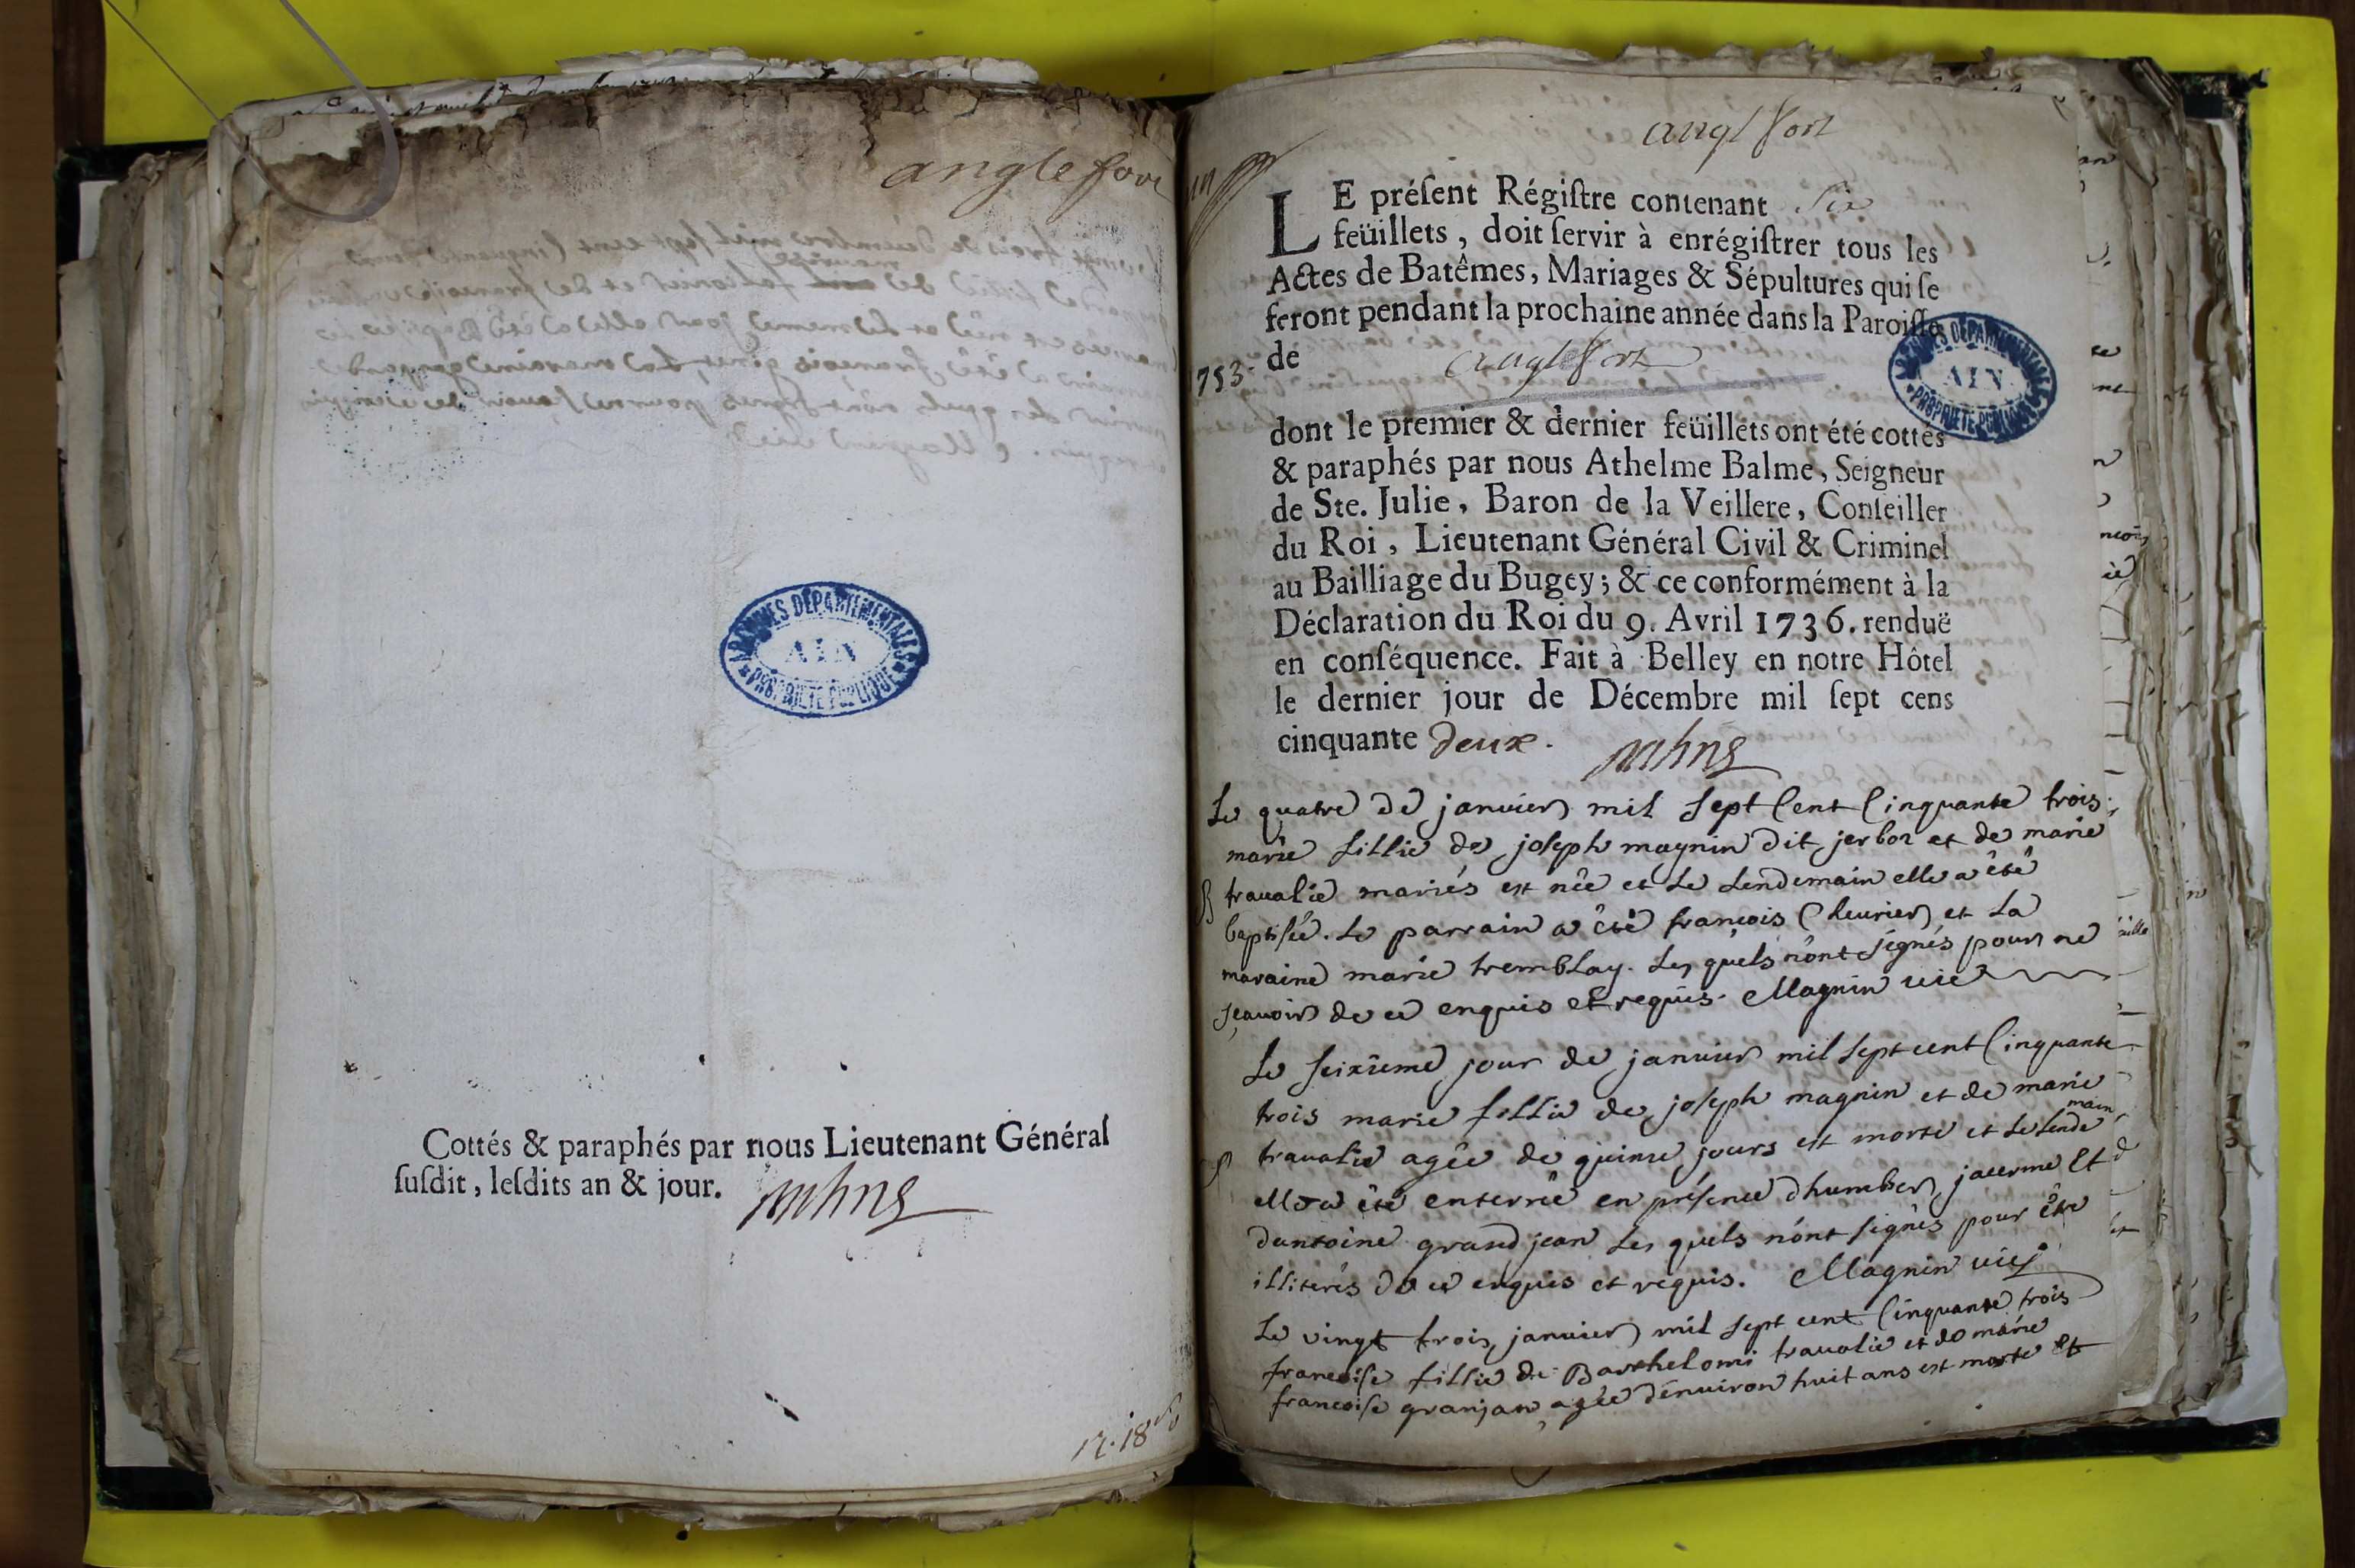 anglefort
ARCHIVES DEPARTEMENTALES
AIN
PROPRIETE PUBLIQUE
Cottés & paraphés par nous Lieutenant Général
ſuſdit, leſdits an & jour.
anglfort
LE préſent Régiſtre contenant Six
feüillets, doit ſervir à enrégiſtrer tous les
Actes de Batêmes, Mariages & Sépultures qui ſe
feront pendant la prochaine année dans la Paroiſſe
de anglefort
1753.
ARCHIVES DEPARTEMENTALES
AIN
PROPRIETE PUBLIQUE
dont le premier & dernier feüillets ont été cottés
& paraphés par nous Athelme Balme, Seigneur
de Ste. Julie, Baron de la Veillere, Conſeiller
du Roi, Lieutenant Général Civil & Criminel
au Bailliage du Bugey; & ce conformément à la
Déclaration du Roi du 9. Avril 1736. renduë
en conſéquence. Fait à Belley en notre Hôtel
le dernier jour de Décembre mil ſept cens
cinquante deux.
Le quatre de janvier mil sept Cent Cinquante trois
marie fillie de joseph magnin dit jerbor et de marie
B travalie mariés est née et Le Lendemain elle a êté
baptisée. Le parrain a êté francois Cheurier et La
maraine marie tremblay. Les quels n'ont signés pour ne
sçauoir de ce enquis et requis. Magnin vic
Le seixieme jour de janvier mil sept cent Cinquante
trois marie fillie de joseph magnin et de marie
S travalie agée de quinze jours est morte et Le Lendemain
elle a êté enterrée en présence dhumber jacerme Et
dantoine grand jean Les quels n'ont signés pour être
illiterés de ce enquis et requis. Magnin vic
Le vingt trois janvier mil sept cent Cinquante trois
francoise fillie de Barthelomi travalie et de marie
francoise granjan agée d'enuiron huit ans est morte et